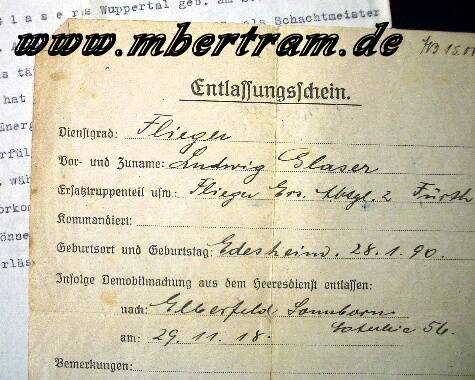 glasers Wuppertal geb. am
als Schachtmeister
www.mbertram.de
hat
Entlassungsschein.
Dienstgrad: Flieger
Vor- und Zuname: Ludwig Glaser
Ersatztruppenteil usw.: Flieger Ers. Abtgl. 2 Fürth
Kommandiert:
Geburtsort und Geburtstag: Edesheim. 28.1.90.
Infolge Demobilmachung aus dem Heeresdienst entlassen:
nach: Elberfeld Sonnborn
56.
am: 29.11.18.
Bemerkungen: